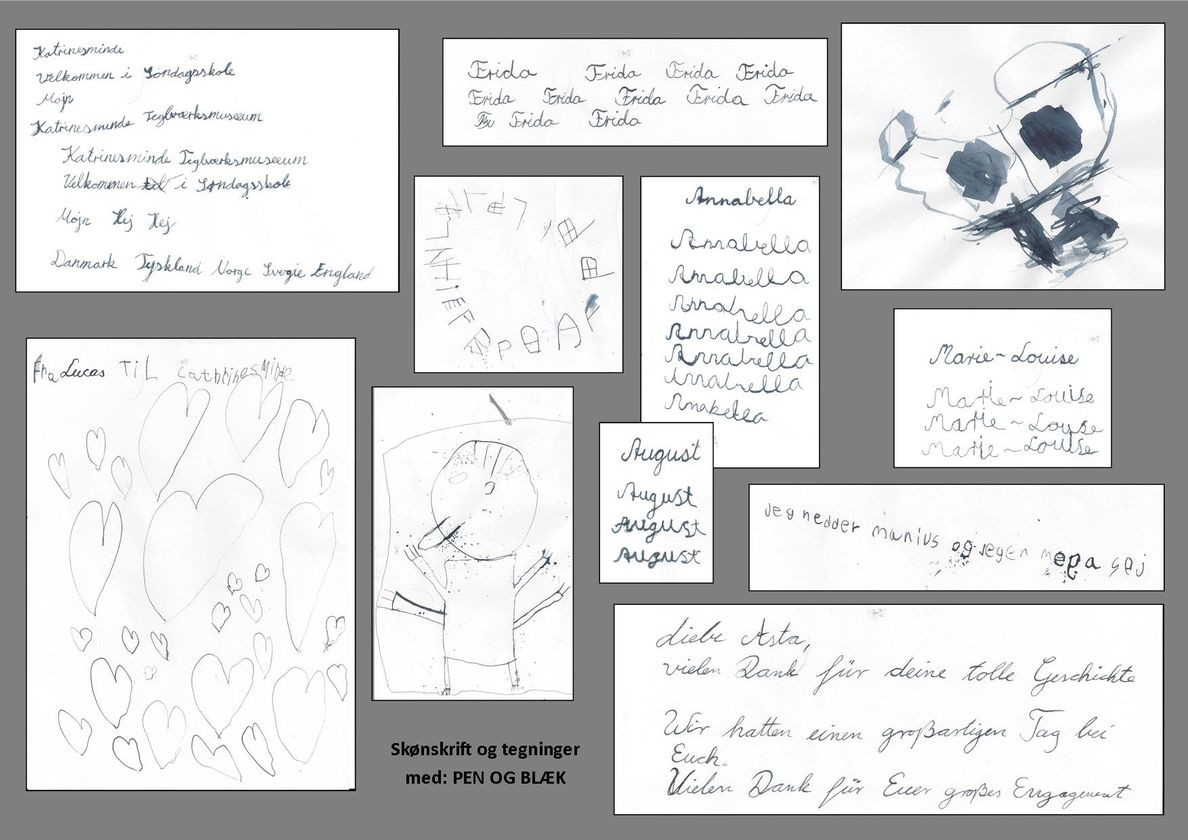 Katrinesminde
Velkommen i Søndagsskole
Mojn
Katrinesminde Teglværksmuseeum
Katrinesminde Teglværksmuseeum
Velkommenen til i Søndagsskole
Mojn Hej Hej
Danmark Tyskland Norge Svergie England
Frida Frida Frida Frida
Frida Frida Frida Frida Frida
Frida Frida
Annabella
Annabella
Annabella
Annabella
Annabella
Annabella
Annabella
Annabella
Marie-Louise
Marie-Louise
Marie-Louise
Marie-Louise
Fra Lucas TiL CathrinesMinde
August
August
August
August
Jeg hedder og
Liebe Asta,
vielen Dank für deine tolle Geschichte
Wir hatten einen großartigen Tag bei
Euch.
Vielen Dank für Euer großes Engagement
Skønskrift og tegninger
med: PEN OG BLÆK